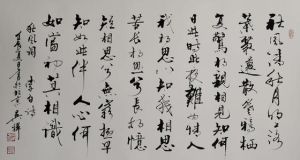 秋風清秋月明落
葉聚還散寒鴉棲
復驚相親相見知何
日此時此夜難為情入
我相思門知我相思
苦長相思兮長相憶
短相思兮無窮極早
知如此絆人心何
如當初莫相識
秋風詞 李白詩